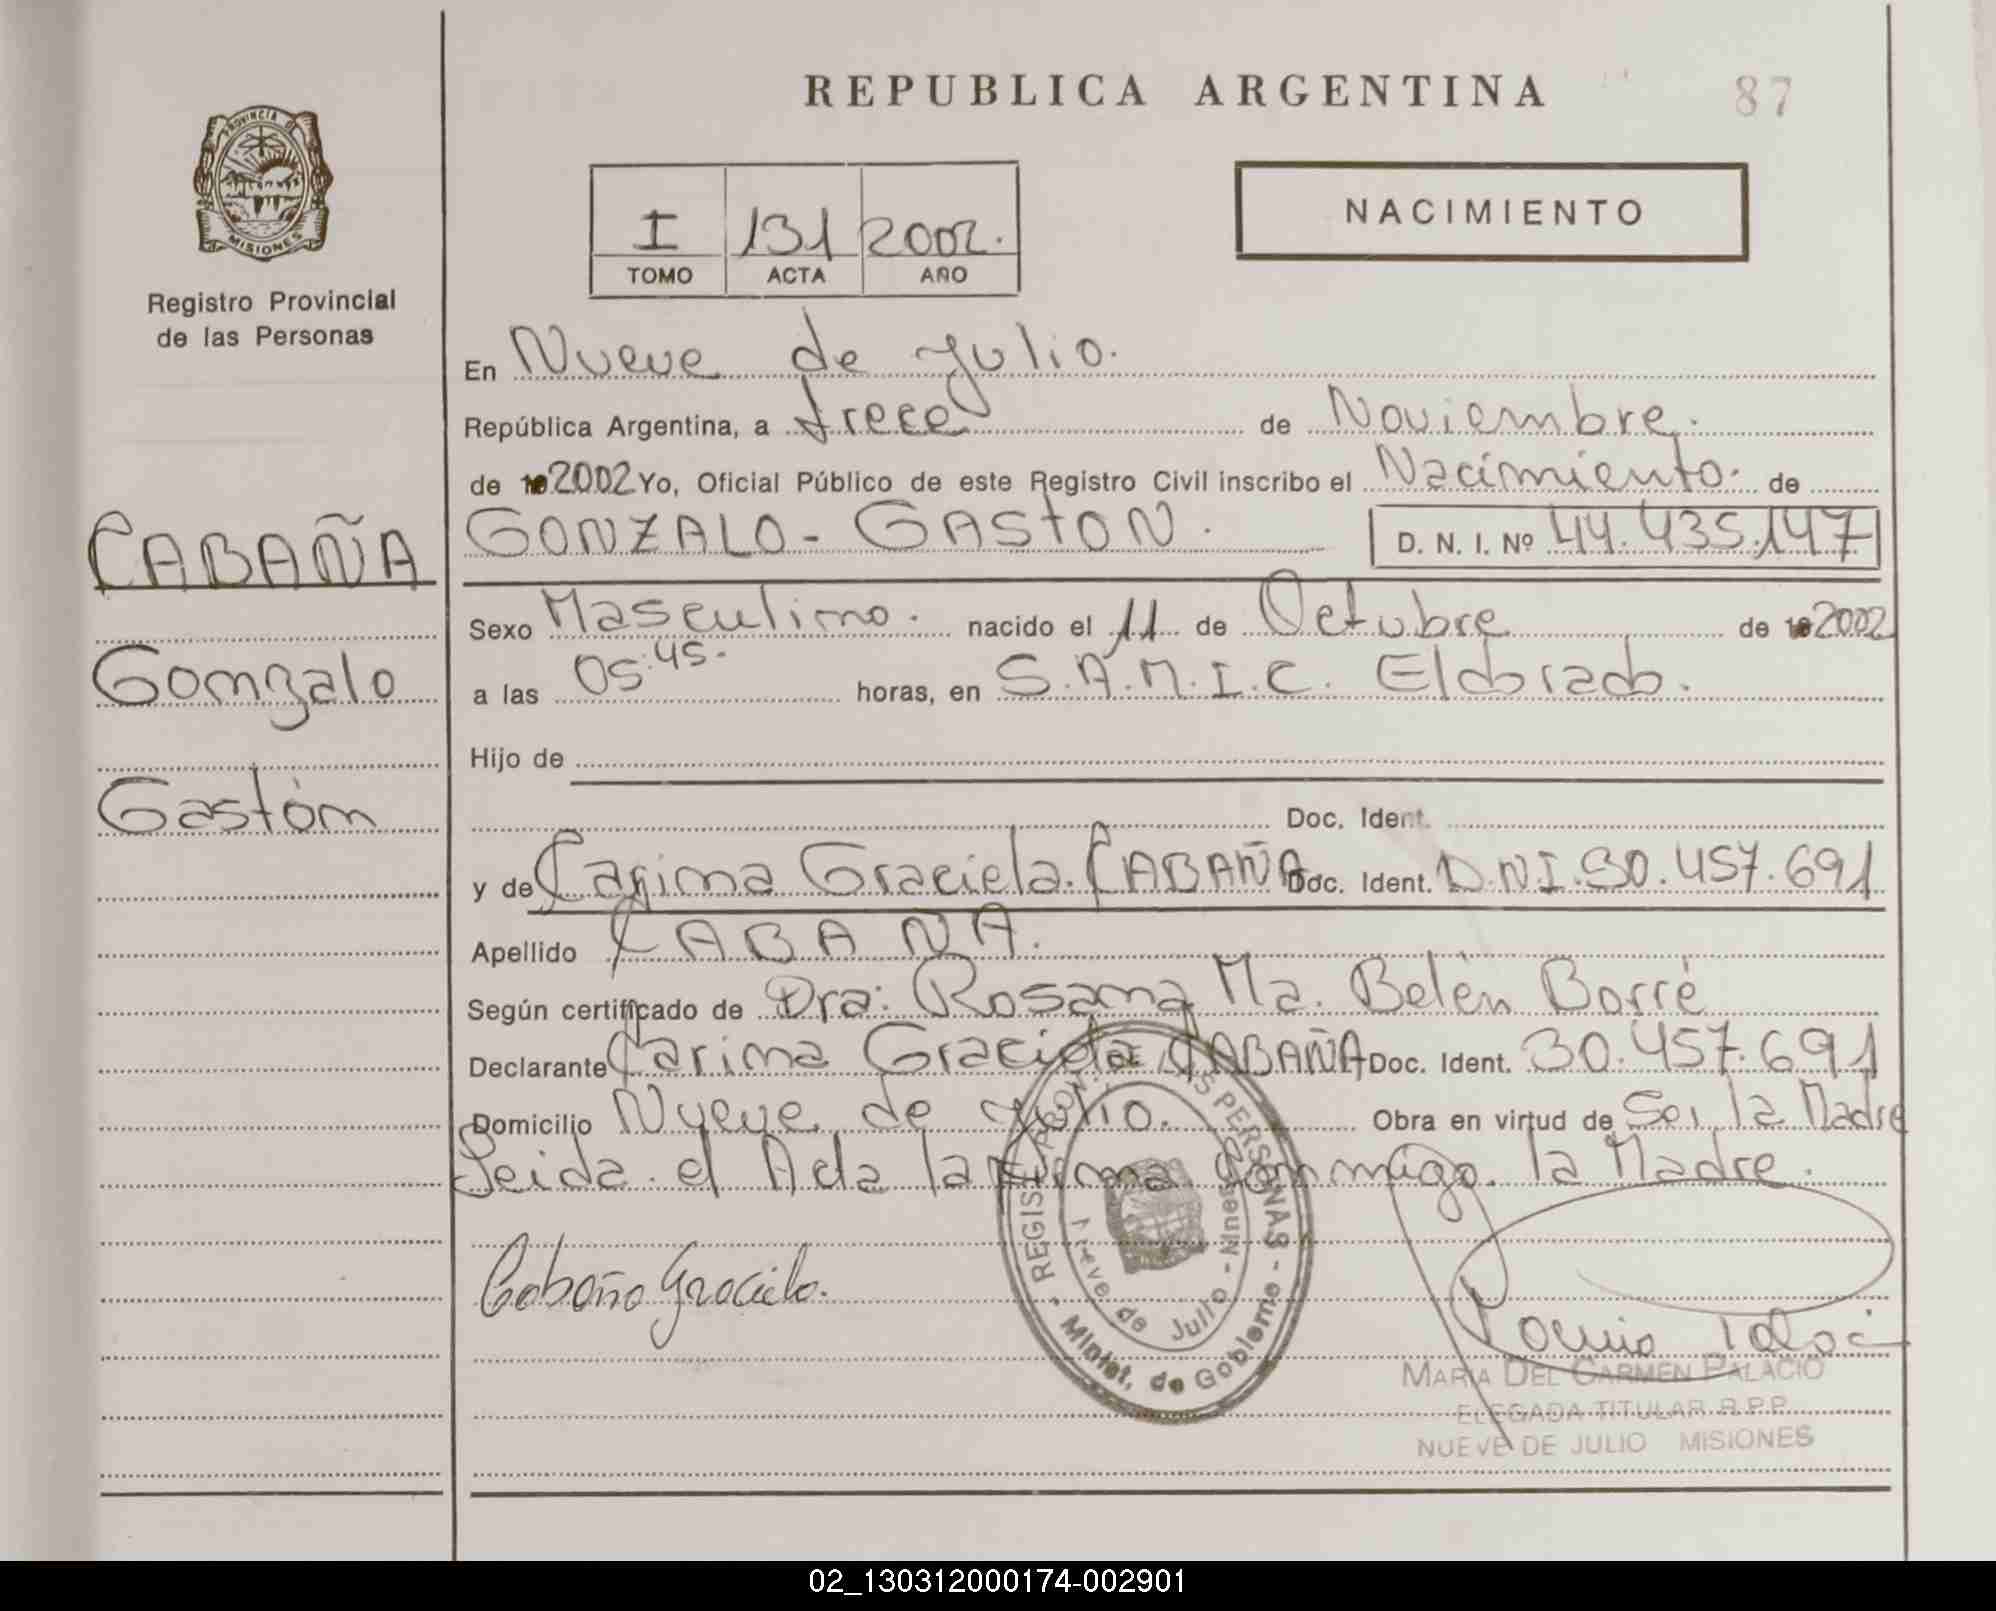 REPUBLICA ARGENTINA
87
PROVINCIA DE
MISIONES
Registro Provincial
de las Personas
I 131 2002.
TOMO ACTA AÑO
NACIMIENTO
En Nueve de Julio.
República Argentina, a trece de Noviembre.
de 19 2002 Yo, Oficial Público de este Registro Civil inscribo el Nacimiento. de
CABAÑA
GONZALO - GASTON. D. N. I. Nº 44.435.147
Sexo Masculino. nacido el 11 de Octubre de 19 2002
Gonzalo
a las 05:45. horas, en S.A.M.I.C. Eldorado.
Hijo de
Gastón
Doc. Ident.
y de Carina Graciela. CABAÑA Doc. Ident. D.N.I. 30.457.691
Apellido CABAÑA.
Según certificado de Dra: Rosana Ma. Belén Borré
Declarante Carina Graciela CABAÑA Doc. Ident. 30.457.691
Domicilio Nueve de Julio. Obra en virtud de Ser la Madre
Leida el Acta la Firma conmigo. la Madre.
Cabaña Graciela.
REGIST. PROV. DE LAS PERSONAS - Minist. de Gobierno -
Nueve de Julio - Mnes
MARIA DEL CARMEN PALACIO
ELEGADA TITULAR R.P.P.
NUEVE DE JULIO MISIONES
02_130312000174-002901